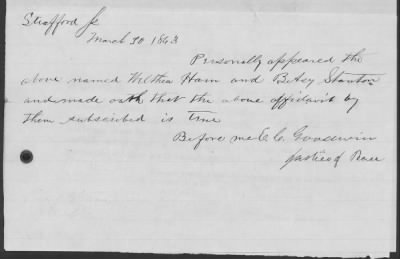 Strafford Ss
March 30 1863
Personally appeared the
above named Welthea Ham and Betsy Stanton
and made oath that the above affidavit by
them subscribed is true
Before me E. C. Goodwin
Justice of Peace